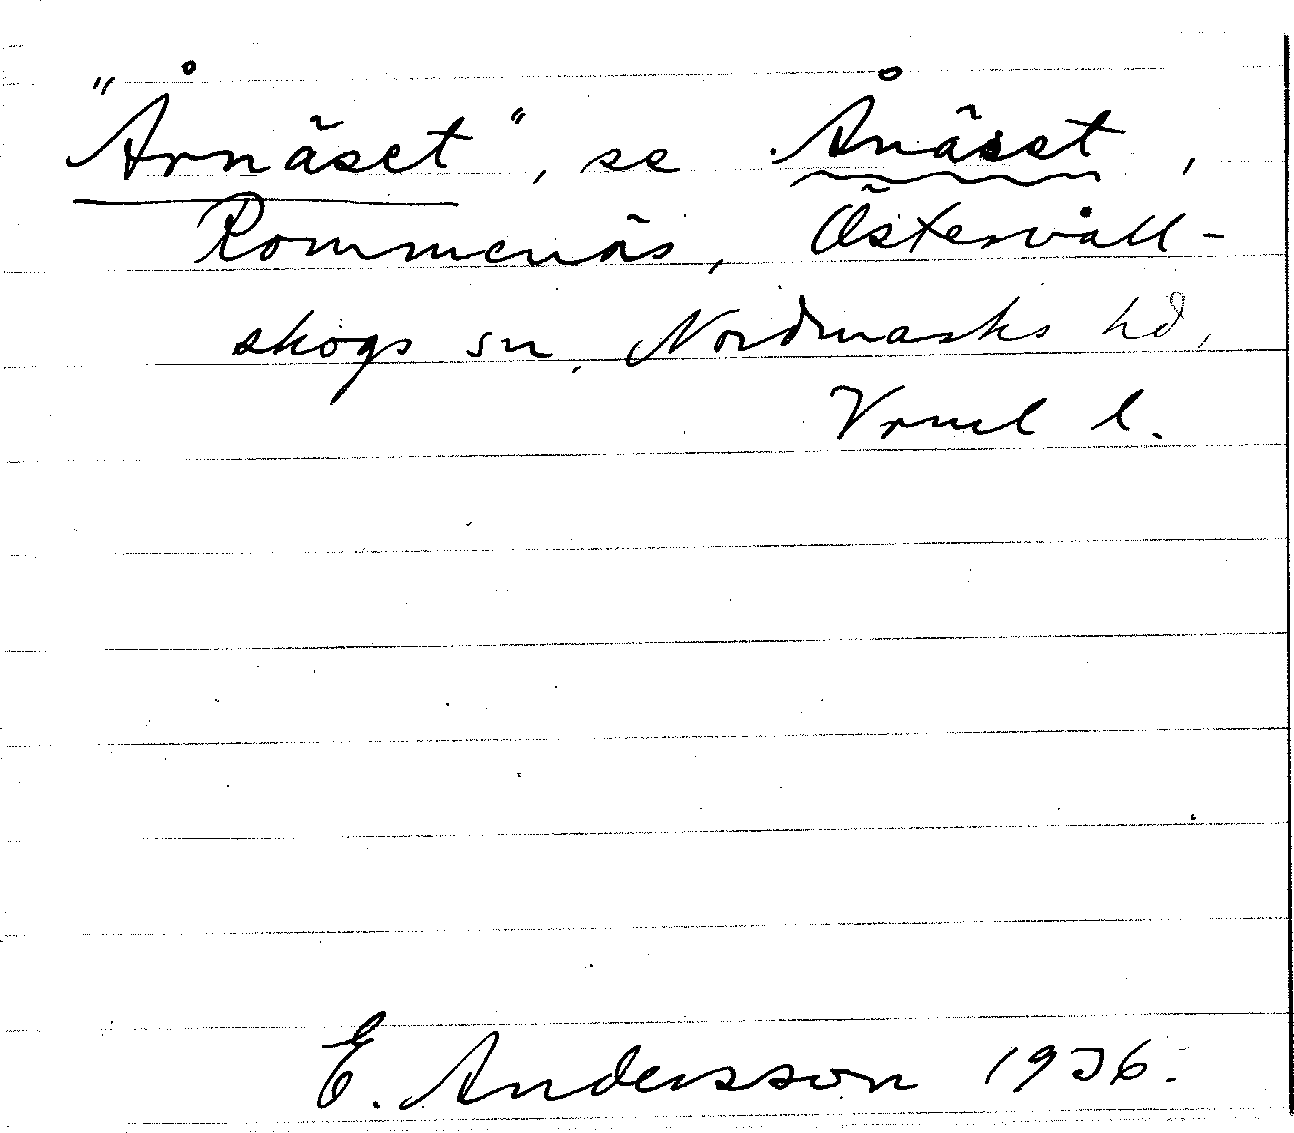 "Årnäset", se Ånäset,
Rommenäs, Östervall-
skogs sn, Nordmarks hd,
Vrml l.
E. Andersson 1936.